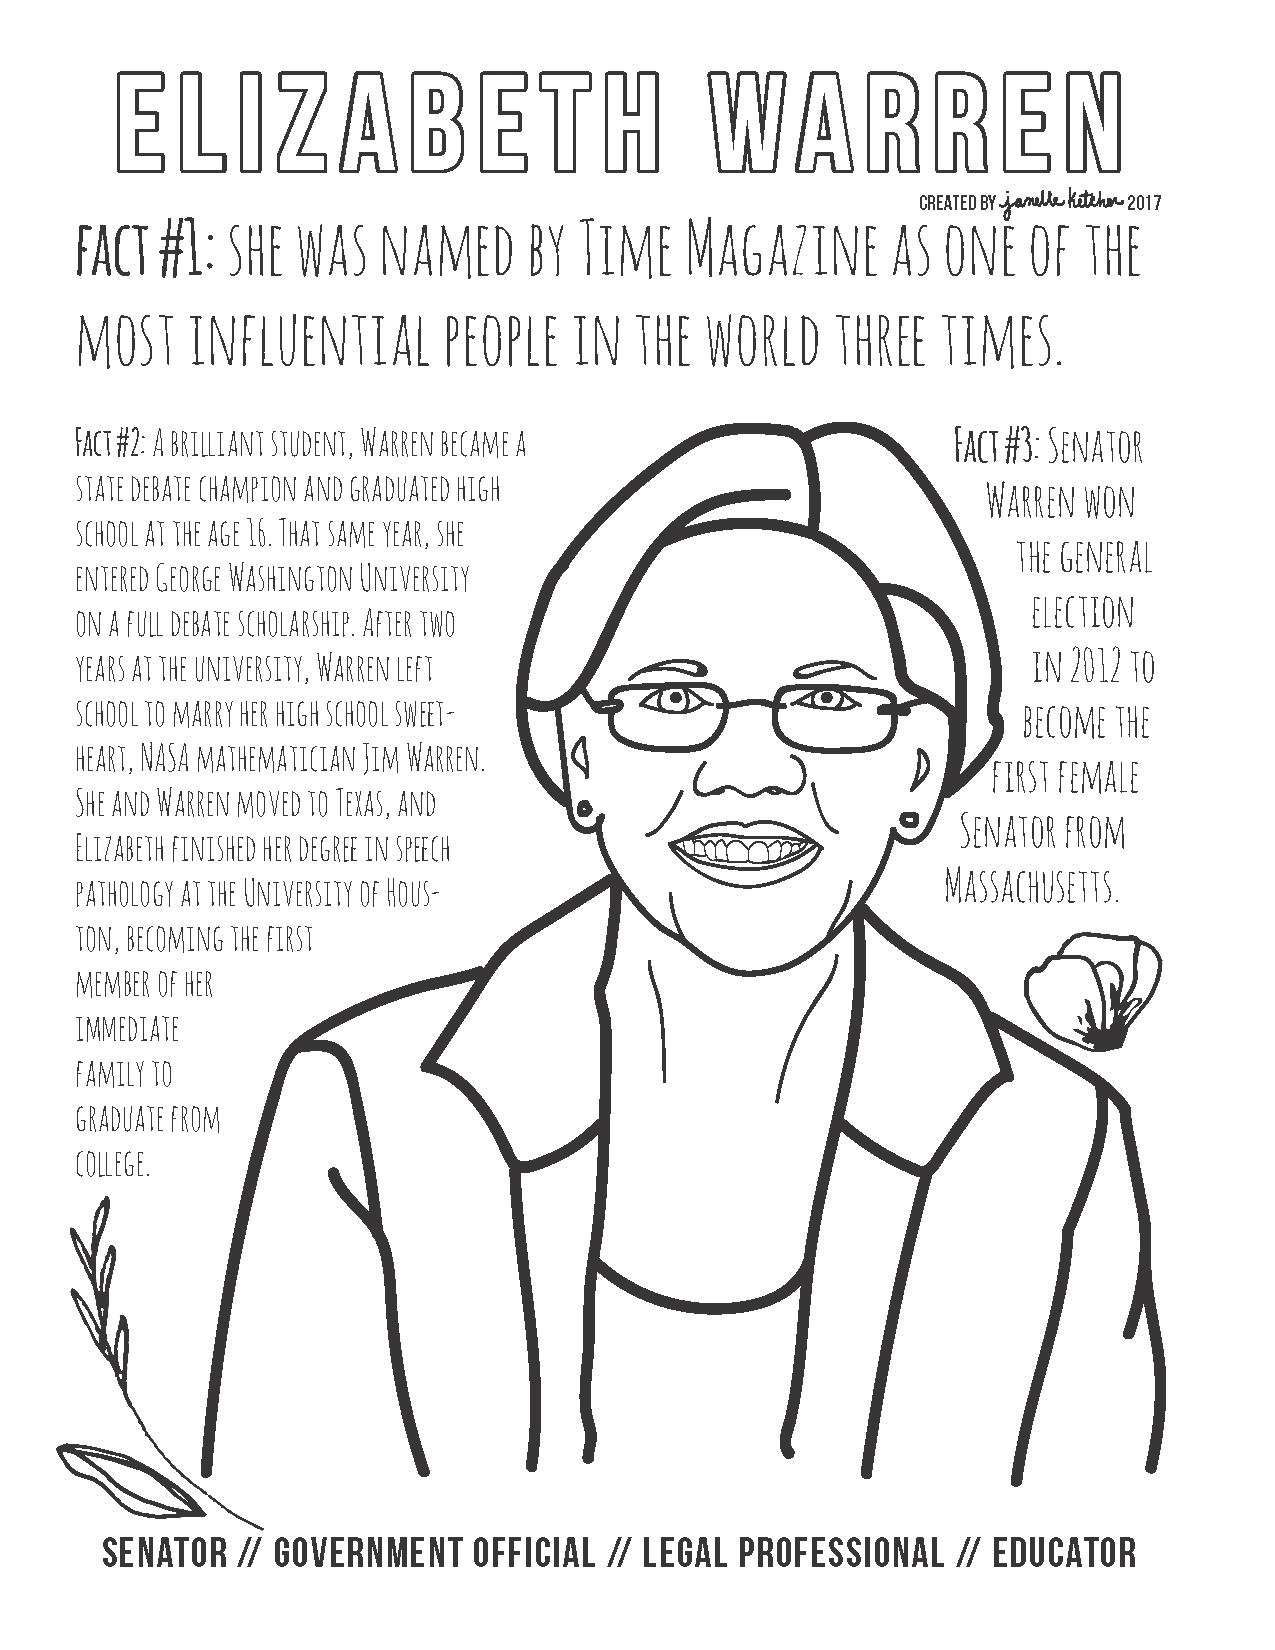 ELIZABETH WARREN
CREATED BY janelle ketcher 2017
FACT #1: SHE WAS NAMED BY TIME MAGAZINE AS ONE OF THE
MOST INFLUENTIAL PEOPLE IN THE WORLD THREE TIMES.
FACT #2: A BRILLIANT STUDENT, WARREN BECAME A
STATE DEBATE CHAMPION AND GRADUATED HIGH
SCHOOL AT THE AGE 16. THAT SAME YEAR, SHE
ENTERED GEORGE WASHINGTON UNIVERSITY
ON A FULL DEBATE SCHOLARSHIP. AFTER TWO
YEARS AT THE UNIVERSITY, WARREN LEFT
SCHOOL TO MARRY HER HIGH SCHOOL SWEET-
HEART, NASA MATHEMATICIAN JIM WARREN.
SHE AND WARREN MOVED TO TEXAS, AND
ELIZABETH FINISHED HER DEGREE IN SPEECH
PATHOLOGY AT THE UNIVERSITY OF HOUS-
TON, BECOMING THE FIRST
MEMBER OF HER
IMMEDIATE
FAMILY TO
GRADUATE FROM
COLLEGE.
FACT #3: SENATOR
WARREN WON
THE GENERAL
ELECTION
IN 2012 TO
BECOME THE
FIRST FEMALE
SENATOR FROM
MASSACHUSETTS.
SENATOR // GOVERNMENT OFFICIAL // LEGAL PROFESSIONAL // EDUCATOR